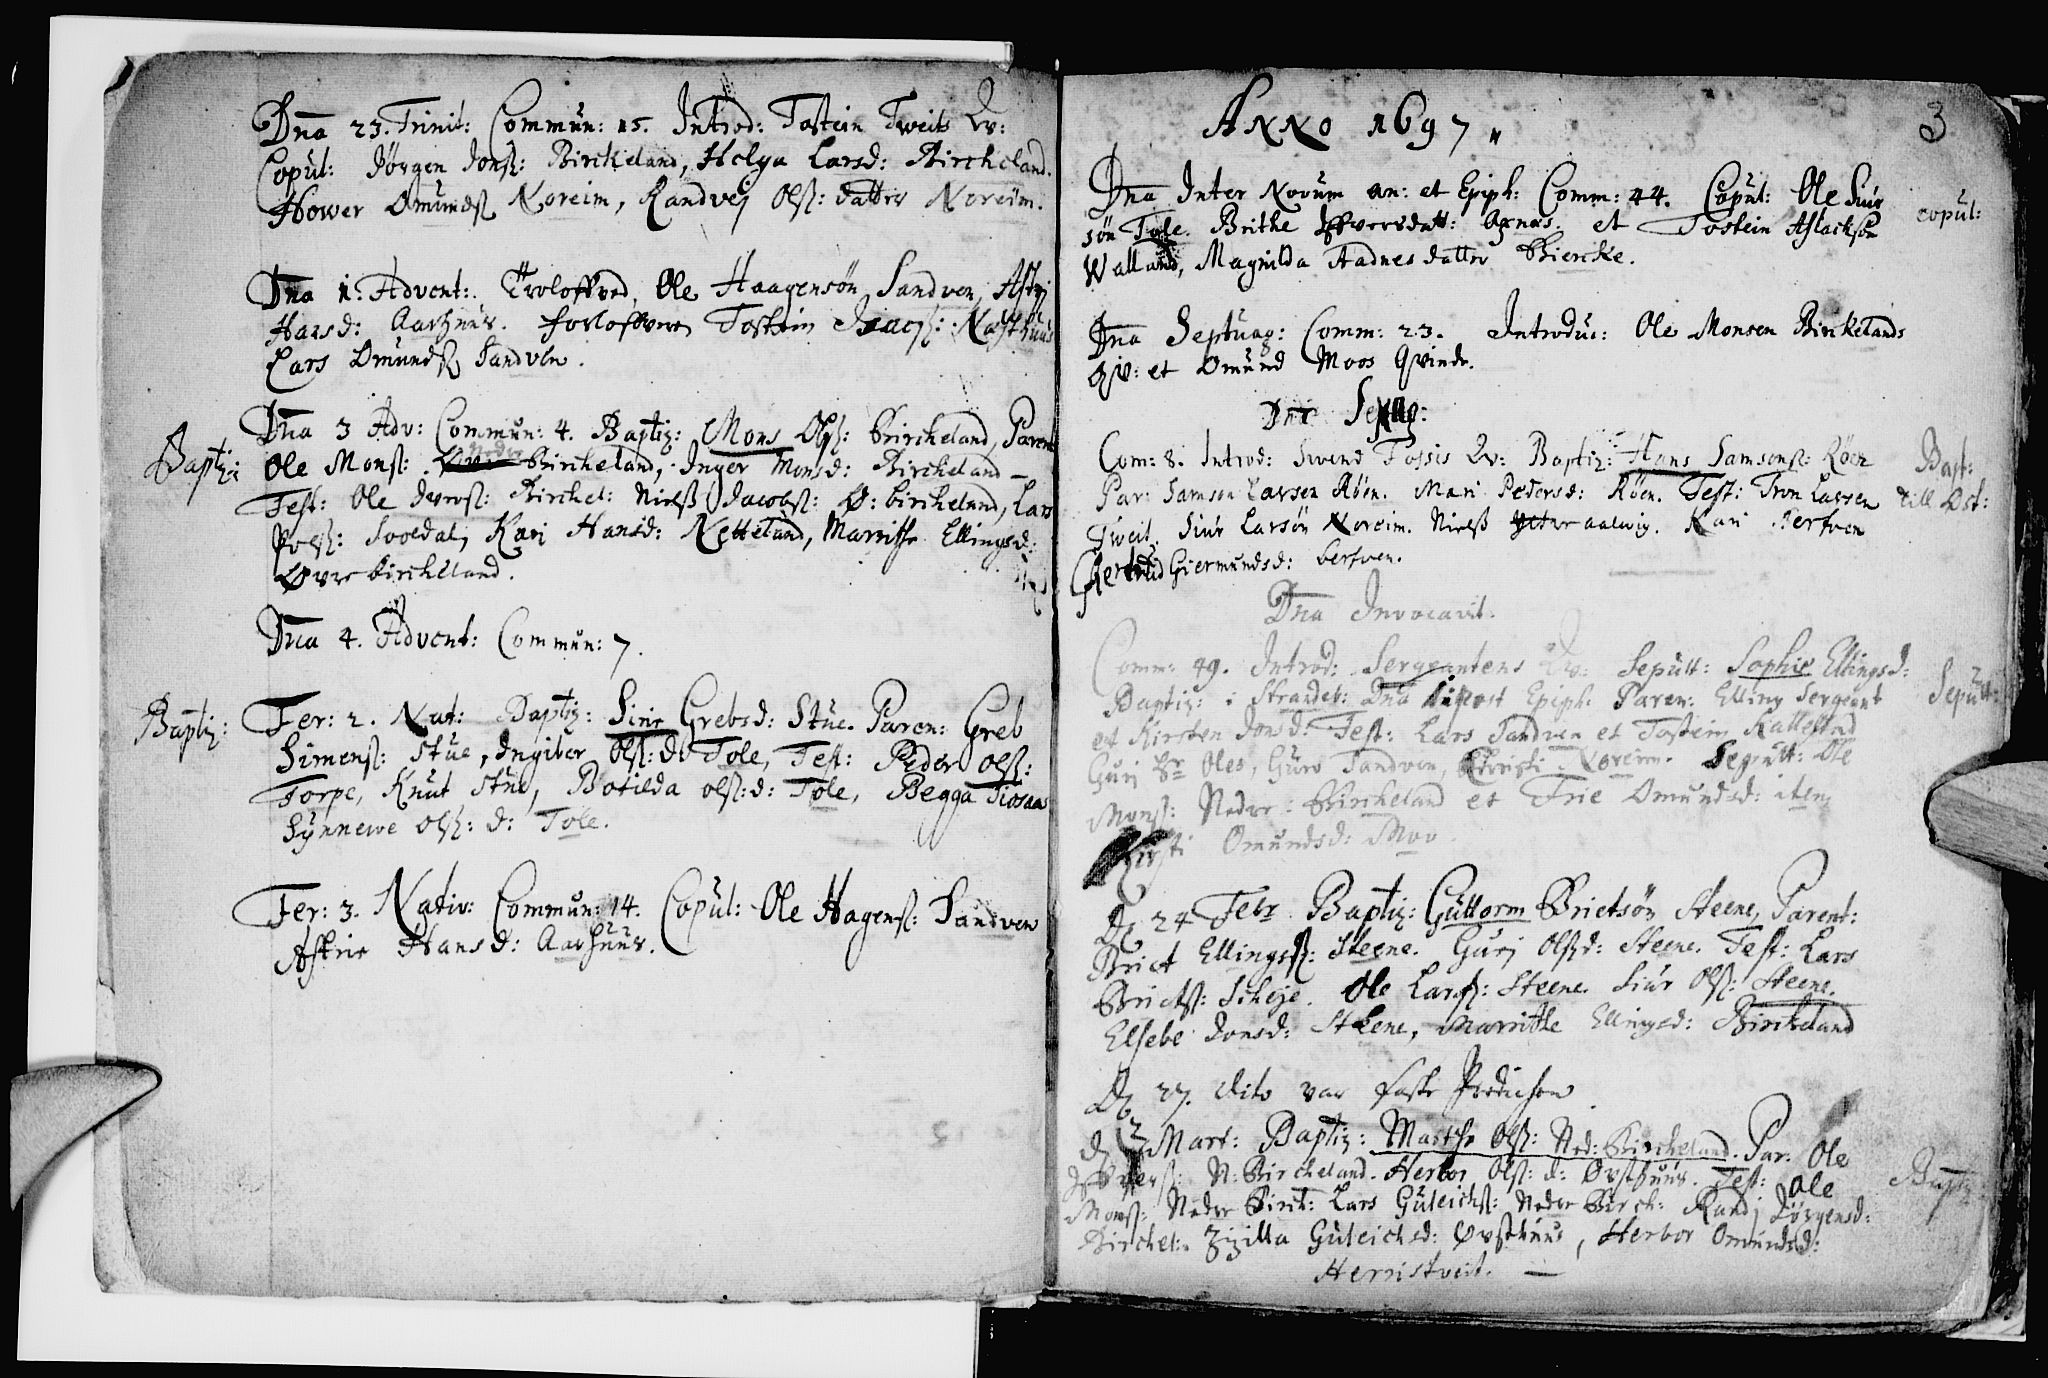 Dna 23. Trinit: Commun: 15. Introd: Tostein Tweits Qv:
Copul: Jørgen Jonſ: Birckeland, Helga Larsd: Birckeland.
Hower Omundſ Noreim, Randvej Olſ: datter Noreim.
Dna 1: Advent: Troloffved, Ole Haagensøn Sandven, Astrj
Hansd: Aarhuus. forloffvere Tostein Isacſ: Næsthuus
Lars Omundſ Sandven.
Dna 3 Adv: Commun: 4. Baptiz: Mons Olſ: Birckeland, Parent
Baptiz:
Ole Monſ: Nedre Birckeland, Inger Monsd: Birckeland
Test: Ole Iverſ: Birckel: Nielß Jacobſ: Ø: birckeland, Lars
Svoldal, Kari Hansd: Netteland, Marritte Ellingsd:
Øvre birckeland.
Dna 4. Advent: Commun: 7.
Baptiz:
Fer: 2. Nat: Baptiz: Sirie Grebsd: Stue. Paren: Greb
Simenſ: Stue, Ingiber Olſ: d: Tole, Test: Peder Olſ:
Torpe, Knut Stue, Botilda olſ: d: Tole, Begga Tiosaas
Synnewe olſ: d: Tole.
Fer: 3. Nativ: Commun: 14. Copul: Ole Hagenſ: Sandven
Astrie Hansd: Aarhuus.
Anno 1697
3
Dna Inter Novum an: et Epiph: Comm: 44. Copul: Ole Siur
copul:
søn Tole. Brithe Iffversdatt: Axnæs. et Tostein Aslacksøn
Walland, Magnilda Aadnesdatter Biercke.
Dna Septuag: Comm: 23. Introduc: Ole Monsen Birkelands
qv: et Omund Moos Qvinde.
Dna Sexag:
Com: 8. Introd: Svend Fossis Qv: Baptiz: Hans Samsonſ: Røen
Bapt:
Par: Samson Larsen Røen. Mari Pedersd: Røen. Test: Tron Larsen
till Ost:
Tveit. Siur Larsøn Noreim. Nielß aalvig. Kari Berfven
Giermundsd: berfven.
Dna Invocavit.
Comm: 49. Introd: Sergeantens Qv: Sepult: Sophie Ellingsd:
Sepult:
Baptiz: i Strandeb: Dna post Epiph: Paren: Elling Sergeant
et Kirsten Jonsd: Test: Lars Sandven et Tostein Kallestad
Gurj Oles, Guro Sandven, Christi Noreim. Sepult: Ole
Monſ: Nedre: Birckeland et Trie Omundsd: item
Kirsti Omundsd: Moo.
D 24 Febr Baptiz: Guttorm Brictsøn Steene, Parent:
Brict Ellingsſ: Steene. Gurj Olſd: Steene. Test: Lars
Brictſ: Scheje. Ole Larsſ: Steene. Siur Olſ: Steene.
Elsebe Jonsd: Steene, Marritte Ellingsd: Birckeland
D 27. dito var faste Predichen
d 2 Mart: Baptiz: Marthe Olſ: Ned: Birckeland. Par: Ole
Baptiz
Iffverſ: N: Birckeland. Herbor Olſ: d: Øvsthuus. Test: Ole
Monſ: Nedre Birck: Lars Guleichſ: Nedre Birck: Randj Jørgensd:
Birckel: Zizilla Guleichsd: Øvsthuus, Herbor Omundsd:
Herristveit.